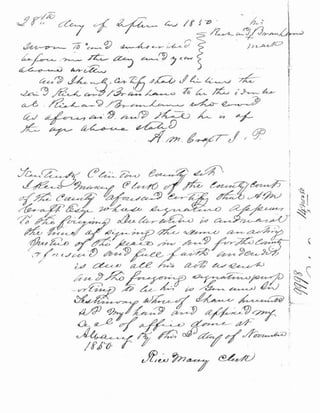 28th day of September 1850
his
Richard Branham
mark
Sworn to and subscribed
before me the day and year
above written
And I hereby certify that I believe the
said Richard Branham to be the iden
al Richard Branham who served
as aforesaid and that he is of
the age above stated
A. M. Craft J. P
Kentucky Clinton County Sct
I Rice Maxey Clerk of the County Court
of the County aforesaid certify that A M
Craft Esqr whose signature appears
to the foregoing Declaration is and was at
the time of signing the same an acting
Justice of the peace in and for the County
aforesaid and full faith and credit
is due all his acts as such
and the foregoing signature purp
orting to be his is genuine In
Testimony whereof I have hereunto
set my hand and affixed my
seal of office done at
Albany Ky this 2 day of November
1850
Rice Maxey Clerk